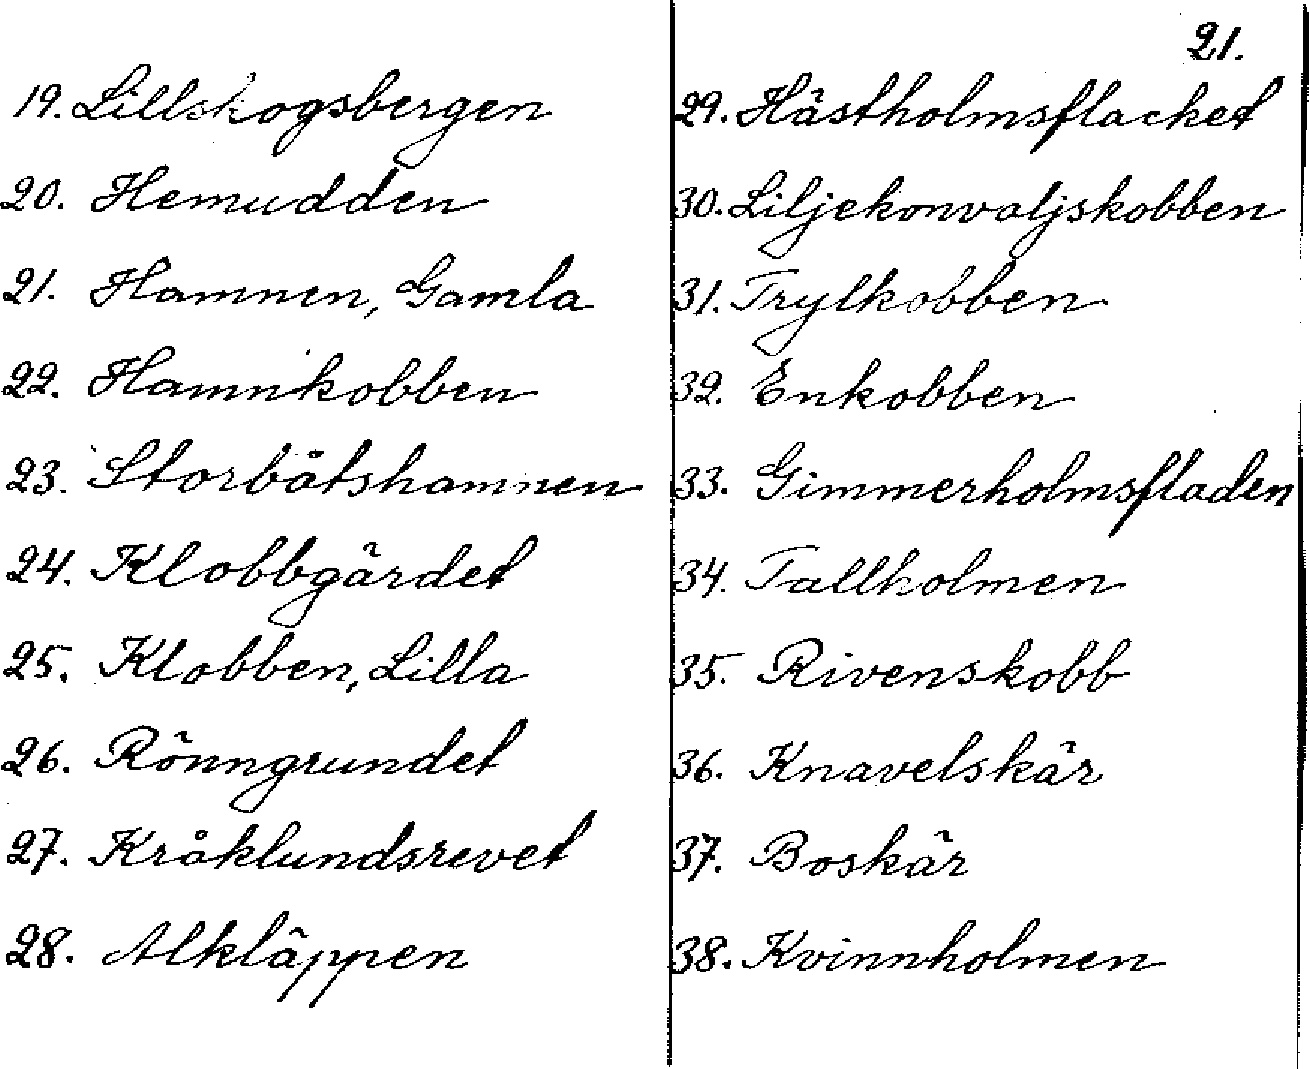 19. Lillskogsbergen
20. Hemudden
21. Hamnen, Gamla
22. Hamnkobben
23. Storbåtshamnen
24. Klobbgärdet
25. Klobben, Lilla
26. Rönngrundet
27. Kråklundsrevet
28. Alkläppen
21.
29. Hästholmsflacket
30. Liljekonvaljskobben
31. Trylkobben
32. Enkobben
33. Gimmerholmsfladen
34. Tallholmen
35. Rivenskobb
36. Knavelskär
37. Boskär
38. Kvinnholmen